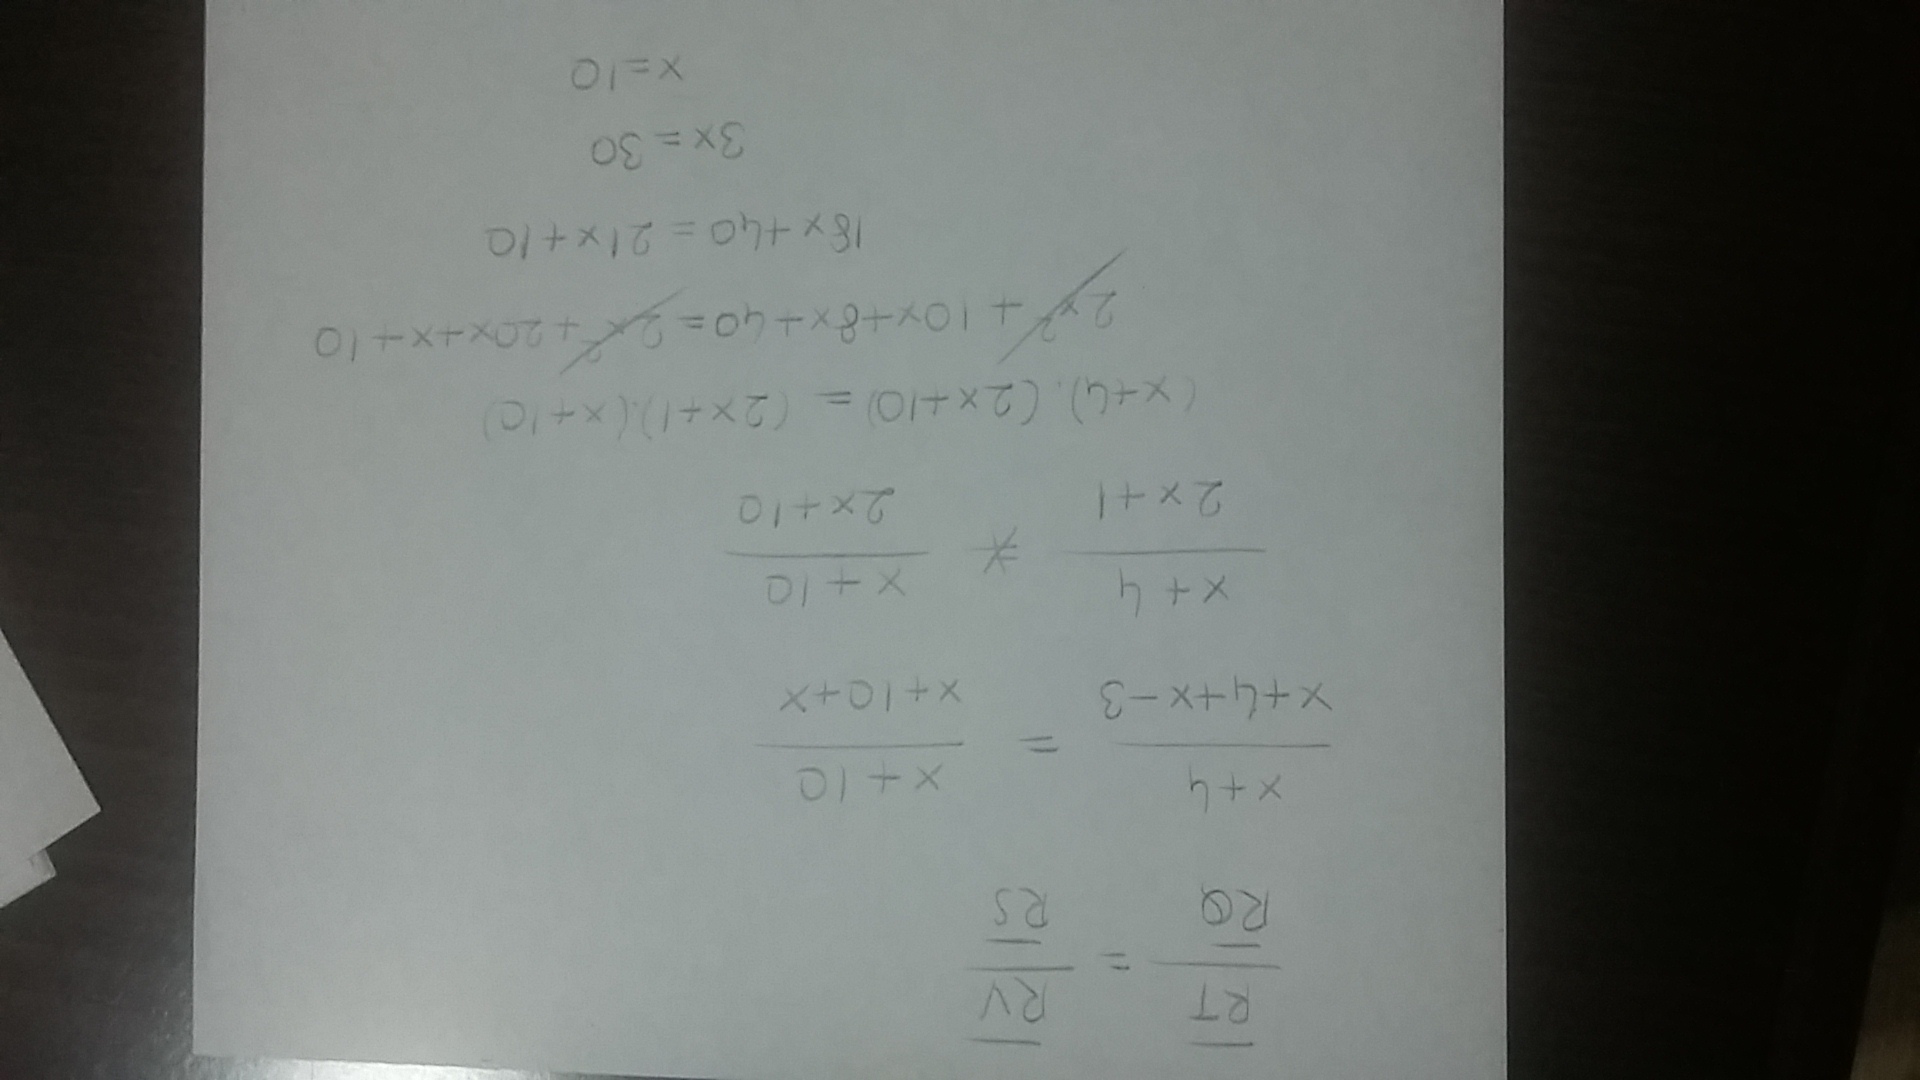 RT/RQ = RV/RS
x+4/x+4+x-3 = x+10/x+10+x
x+4/2x+1 * x+10/2x+10
(x+4).(2x+10) = (2x+1).(x+10)
2x²+10x+8x+40=2x²+20x+x+10
18x+40=21x+10
3x=30
x=10